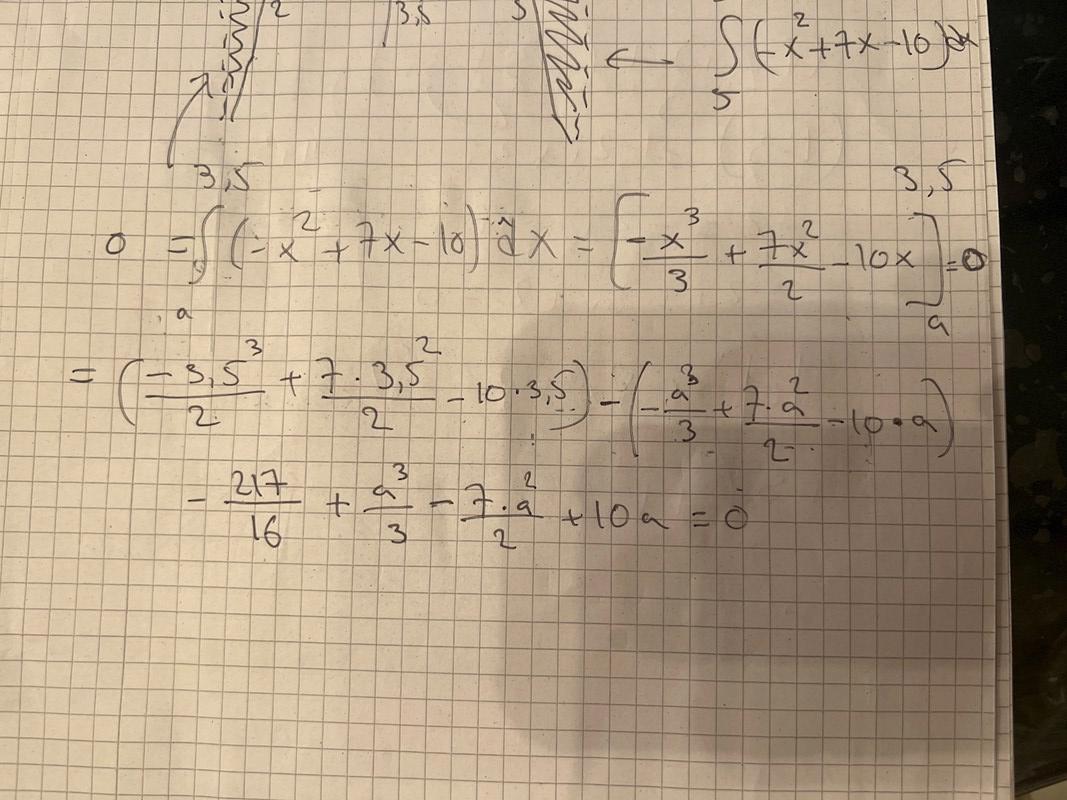 2 3,5 5 ← ∫ (-x² + 7x - 10) dx
5
3,5 3,5
0 = ∫ (-x² + 7x - 10) dx = [-x³/3 + 7x²/2 - 10x] = 0
a a
= (-3,5³/2 + 7·3,5²/2 - 10·3,5) - (-a³/3 + 7·a²/2 - 10·a)
- 217/16 + a³/3 - 7·a²/2 + 10a = 0